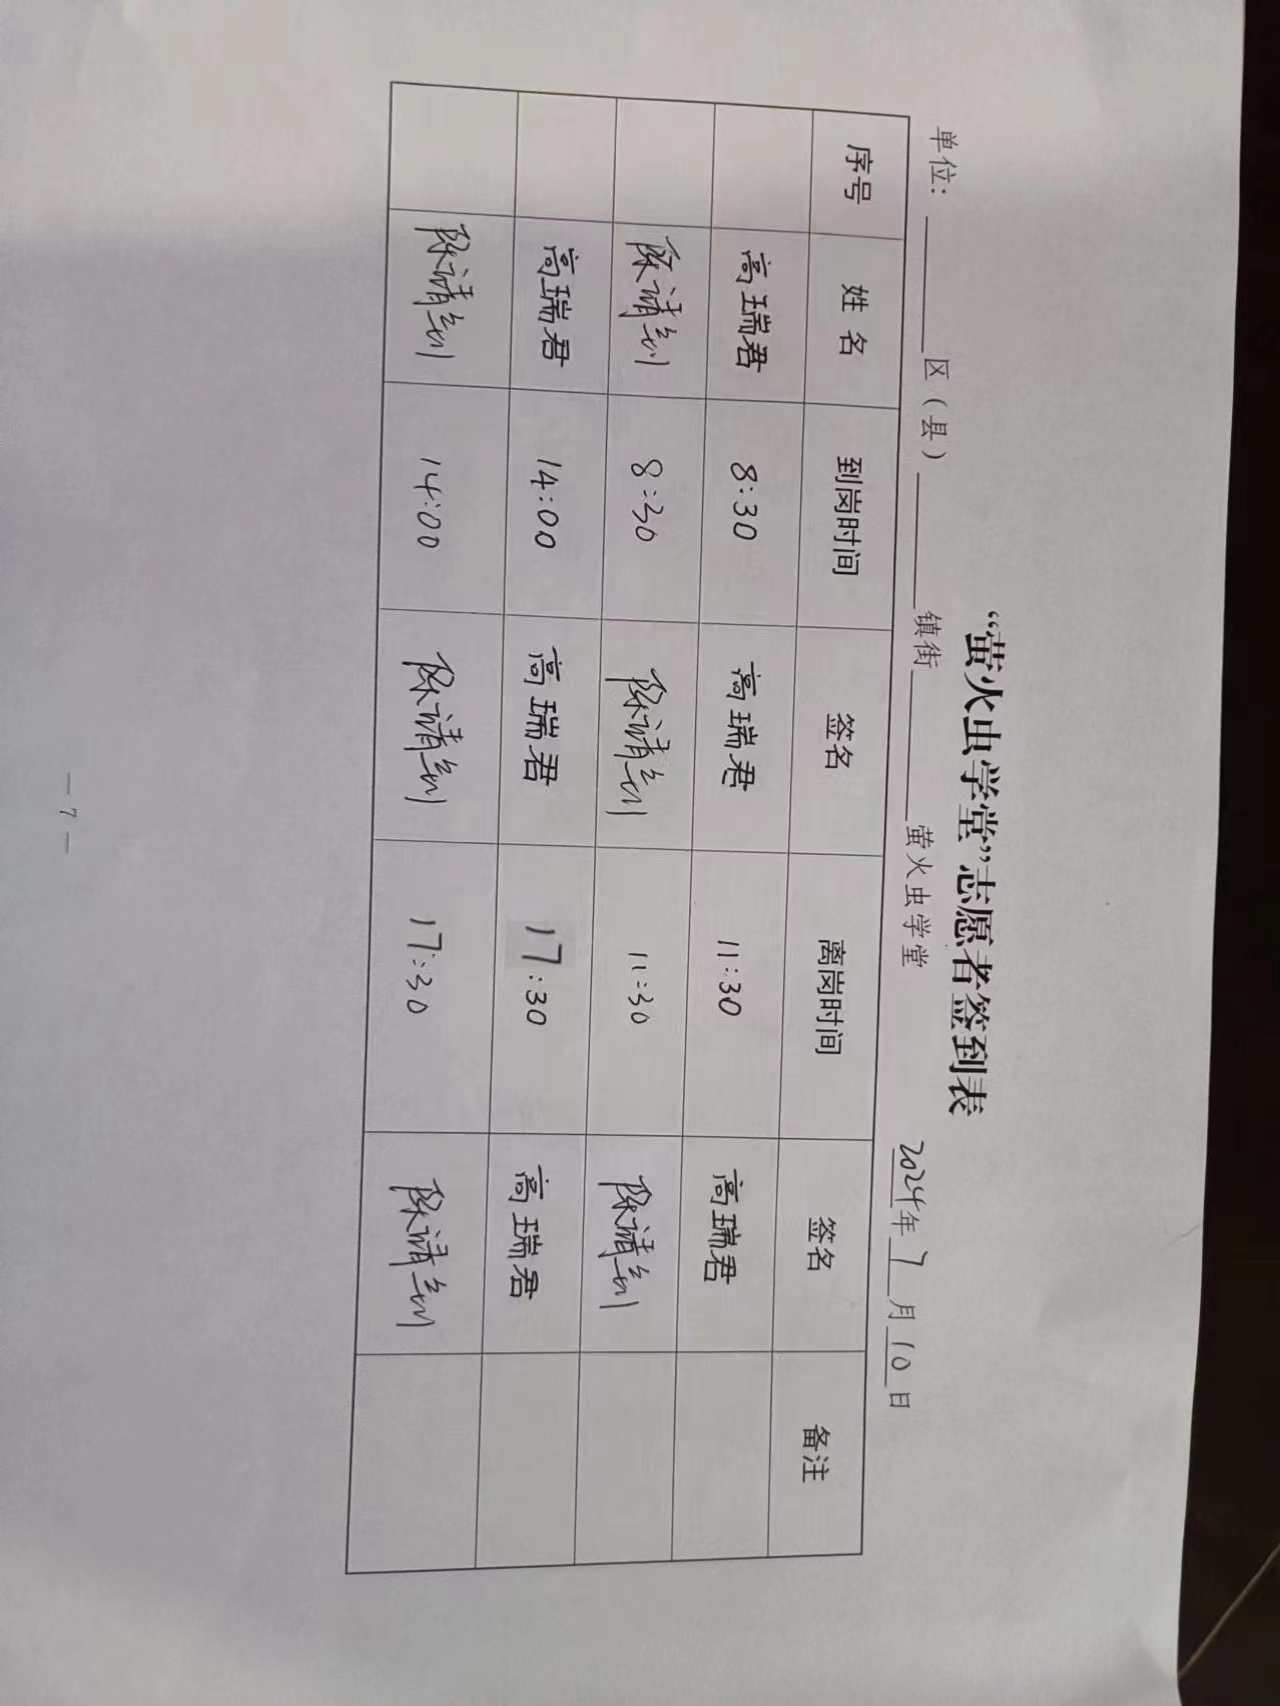 “萤火虫学堂”志愿者签到表
单位：______区（县）______镇街______萤火虫学堂 2024年7月10日
序号 姓名 到岗时间 签名 离岗时间 签名 备注
高瑞君 8:30 高瑞君 11:30 高瑞君
陈请钊 8:30 陈请钊 11:30 陈请钊
高瑞君 14:00 高瑞君 17:30 高瑞君
陈请钊 14:00 陈请钊 17:30 陈请钊
— 7 —